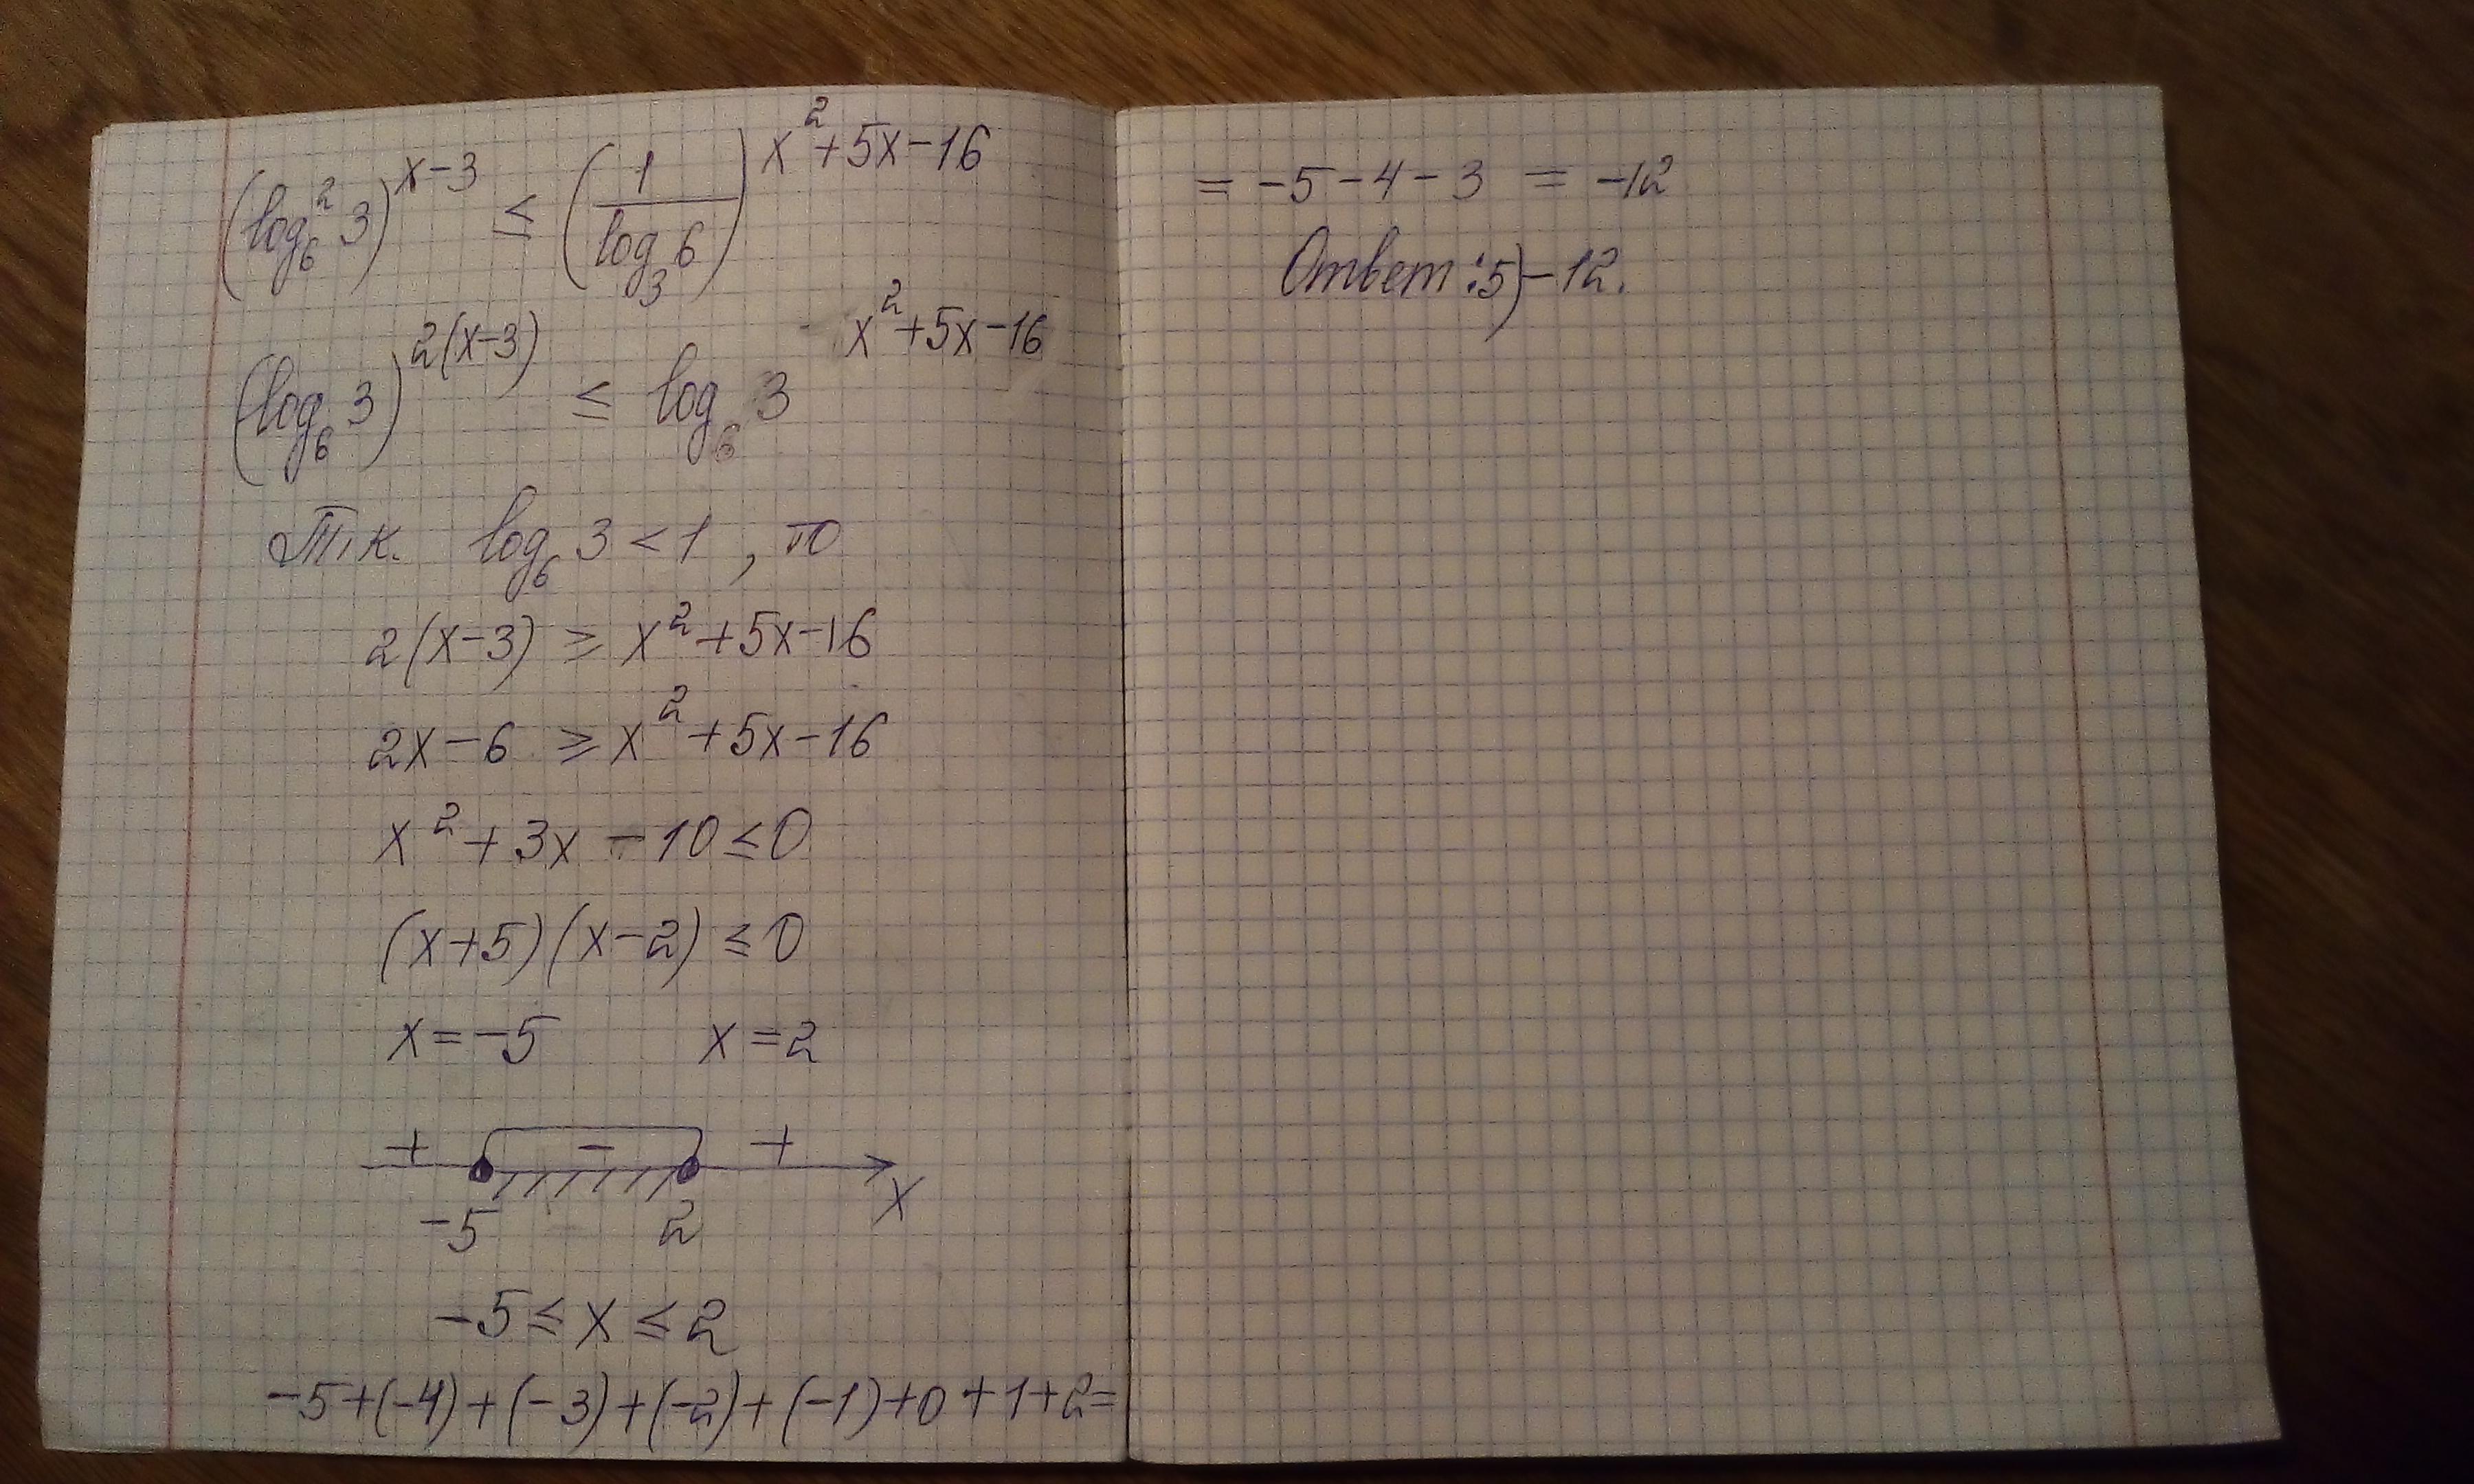 (log₆² 3)^(x−3) ≤ (1/log₃ 6)^(x²+5x−16)
(log₆ 3)^(2(x−3)) ≤ log₆ 3^(x²+5x−16)
Т.к. log₆ 3 < 1, то
2(x−3) ≥ x²+5x−16
2x−6 ≥ x²+5x−16
x²+3x−10 ≤ 0
(x+5)(x−2) ≤ 0
x=−5 x=2
+ − +
−5 2 x
−5 ≤ x ≤ 2
−5+(−4)+(−3)+(−2)+(−1)+0+1+2=
= −5−4−3 = −12
Ответ: 5) −12.